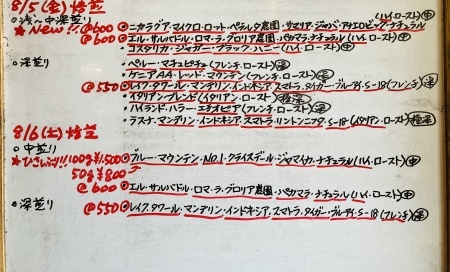 8/5(金)焙煎
○浅〜中深煎り
★New!! @600 ◎ニカラグア・マイクロ・ロット・ペラルタ農園・サマリア・ジャバ・アナエロビック・ナチュラル(ハイ・ロースト)㊥
@600 ◎エル・サルバドル・ロマ・ラ・グロリア農園・パカマラ・ナチュラル(ハイ・ロースト)㊥
・コスタリカ・ジャガー・ブラック・ハニー(ハイ・ロースト)㊥
○深煎り
・ペルー・マチュピチュ(フレンチ・ロースト)深
・ケニアAA・レッド・マウンテン(フレンチ・ロースト)深
@550 ◎レイク・タワール・マンデリン・インドネシア・スマトラ・タイガー・ブルーアイ・S-18(フレンチ)深
・イタリアン・ブレンド(イタリアン・ロースト)極深
・ハイランド・ハラー・エチオピア(フレンチ・ロースト)深
・ラスナ・マンデリン・インドネシア・スマトラ・リントンニタ・S-18(イタリアン・ロースト)極深
8/6(土)焙煎
○中煎り
★ひさしぶり!! 100g¥1,500 ◎ブルー・マウンテン・NO.1・クライスデール・ジャマイカ・ナチュラル(ハイ・ロースト)㊥
50g¥800
@600 ◎エル・サルバドル・ロマ・ラ・グロリア農園・パカマラ・ナチュラル(ハイ・ロースト)㊥
○深煎り @550 ◎レイク・タワール・マンデリン・インドネシア・スマトラ・タイガー・ブルーアイ・S-18(フレンチ)深